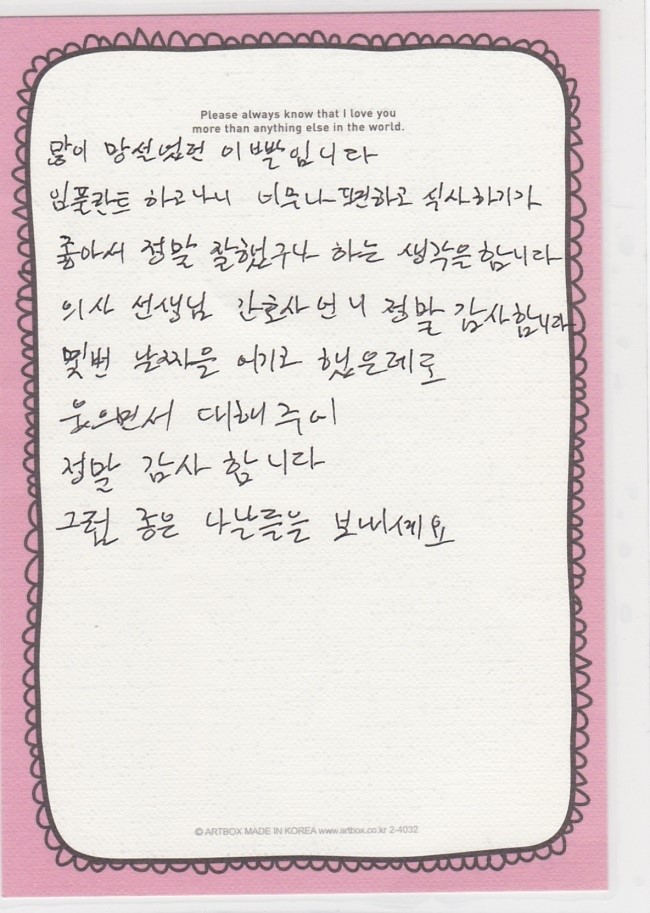 Please always know that I love you
more than anything else in the world.
많이 망설였던 이빨입니다
임플란트 하고나니 너무나 편하고 식사하기가
좋아서 정말 잘했구나 하는 생각을 합니다
의사 선생님 간호사 언니 정말 감사합니다
몇번 날짜를 어기고 했은데로
웃으면서 대해 주어
정말 감사 합니다
그럼 좋은 나날들을 보내세요
© ARTBOX MADE IN KOREA www.artbox.co.kr 2-4032